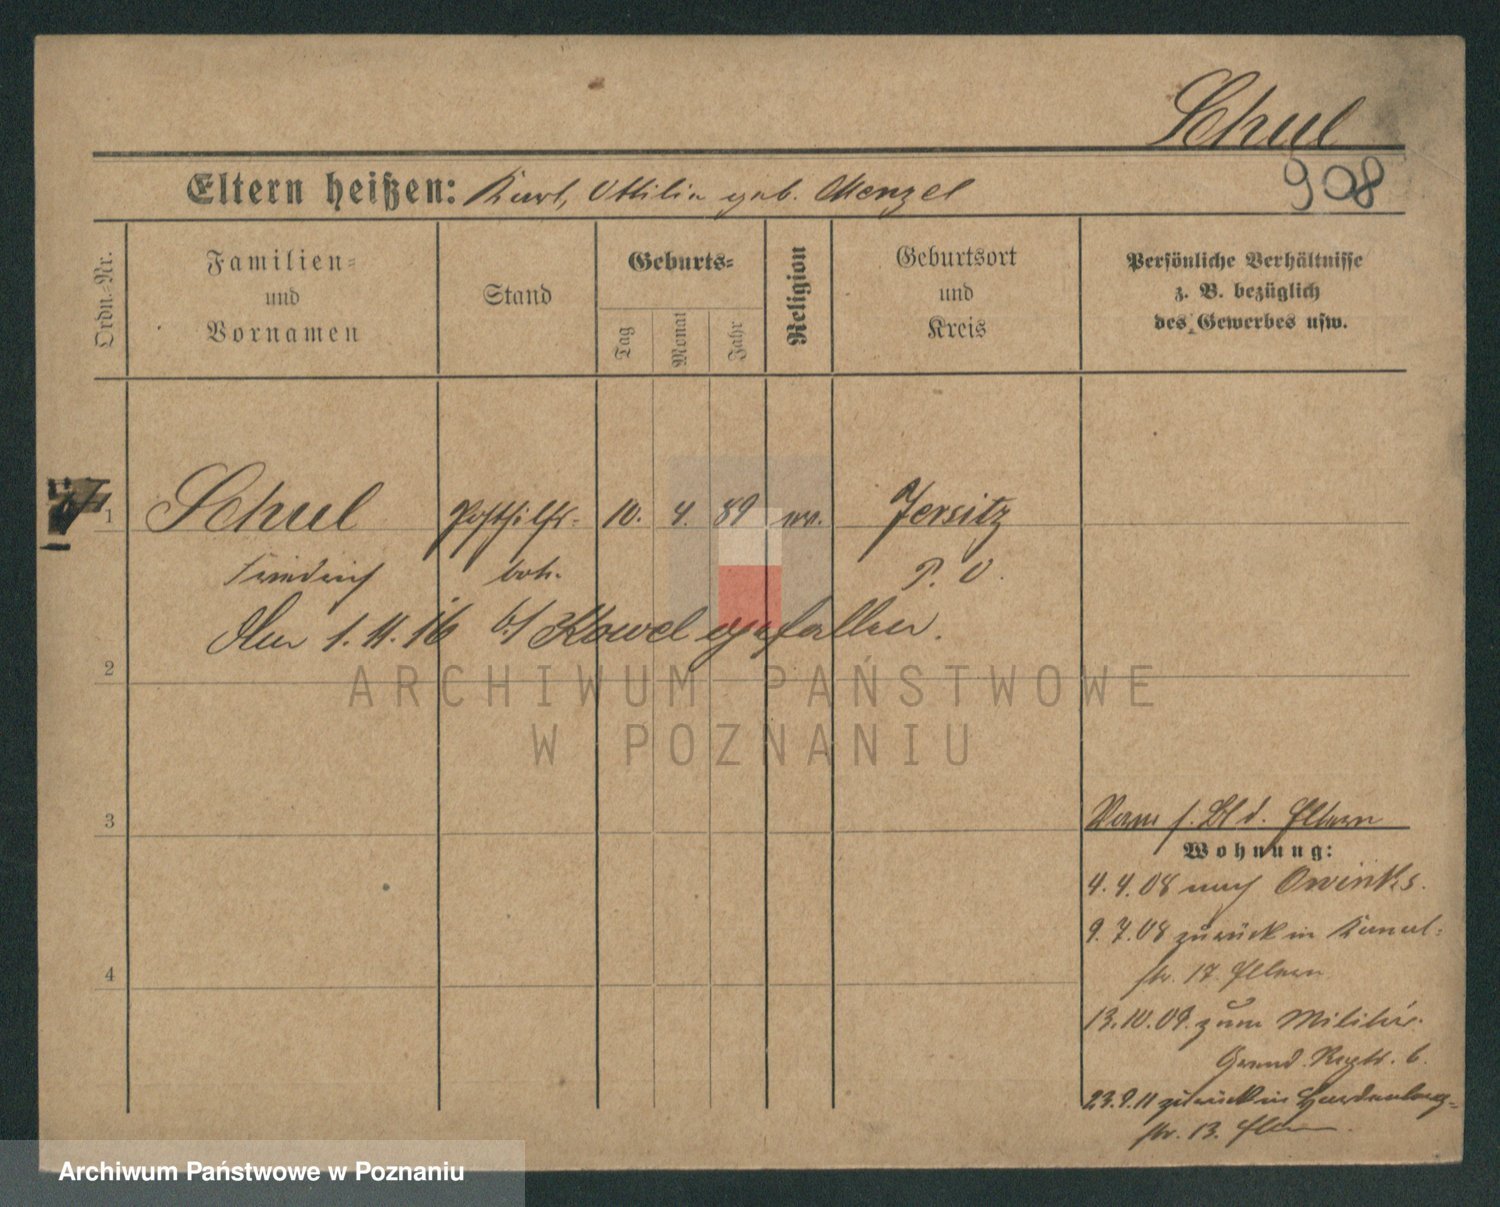 Schul
908
Eltern heißen: Karl, Ottilie geb. Menzel
Ordn.-Nr.
Familien-
und
Vornamen
Stand
Geburts-
Tag
Monat
Jahr
Religion
Geburtsort
und
Kreis
Persönliche Verhältnisse
z. B. bezüglich
des Gewerbes usw.
1 Schul Posthilfs- 10. 4. 89 ev. Jersitz
Friedrich bote. P. O.
Am 1.11.16 b/ Kowel gefallen.
2
3
4
Vorm s. Bl d. Eltern
Wohnung:
4.4.08 nach Owinsk.
9.7.08 zurück in Kanal-
str. 17. Eltern
13.10.09. zum Militär.
Grend. Regt. 6.
23.9.11 zurück in Hardenberg-
str. 13. Eltern
ARCHIWUM PAŃSTWOWE
W POZNANIU
Archiwum Państwowe w Poznaniu